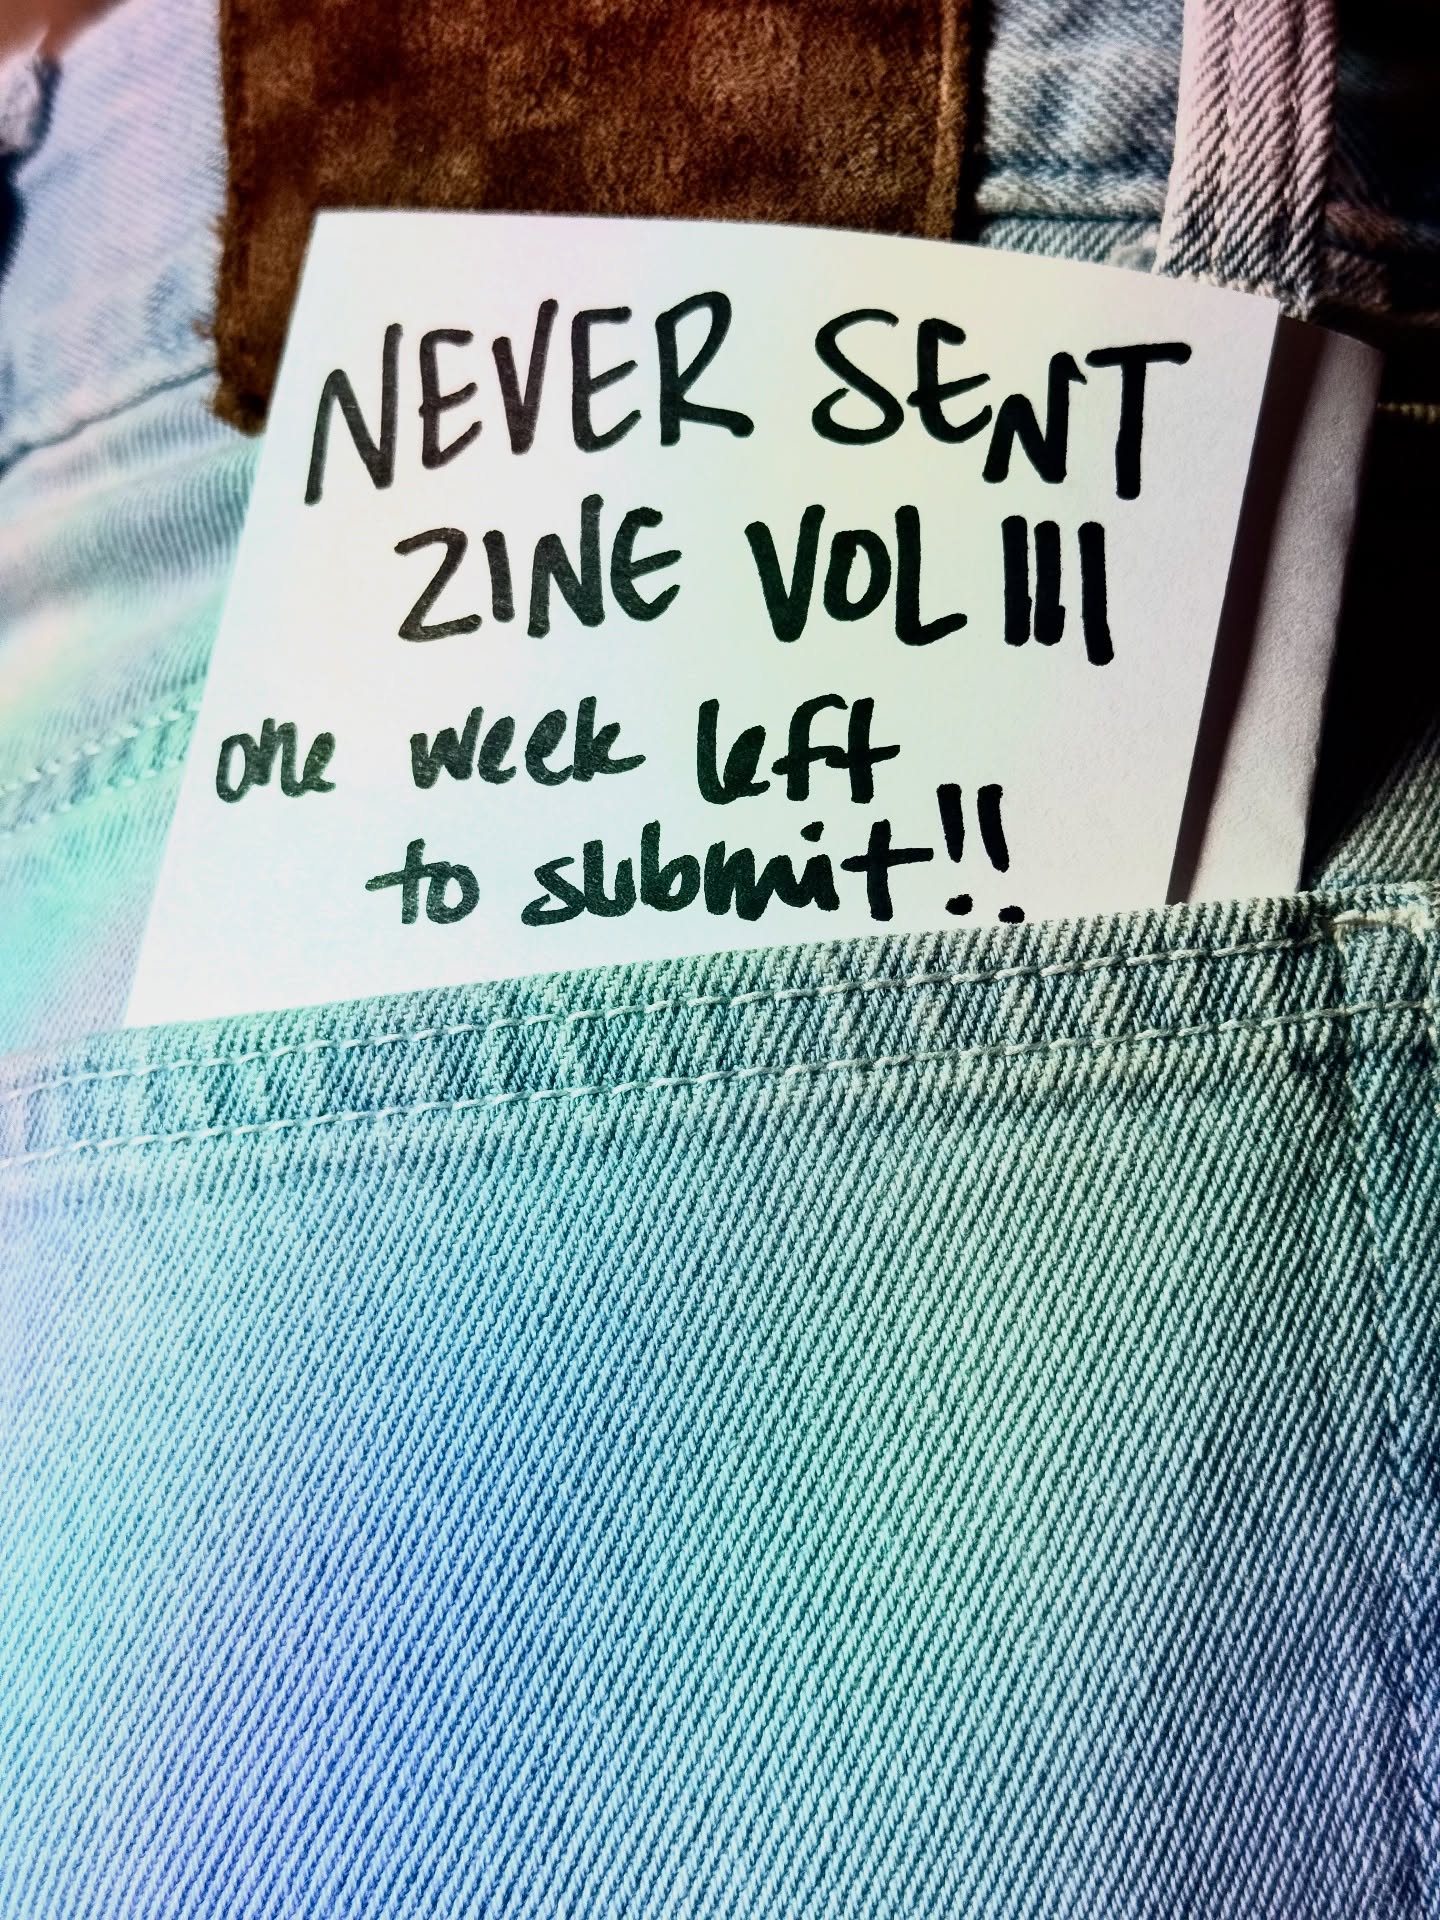 NEVER SENT
ZINE VOL III
one week left
to submit!!